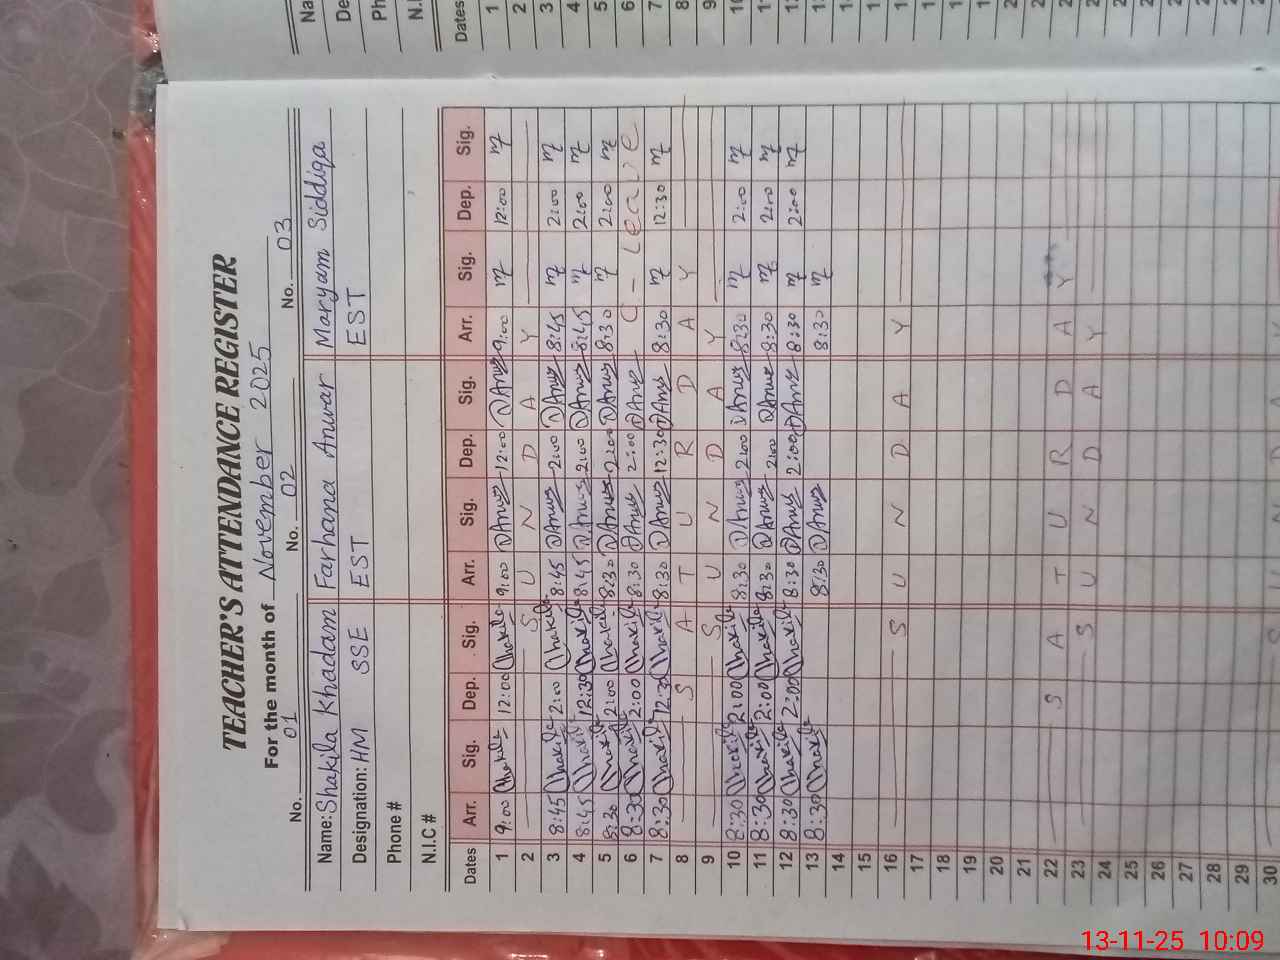 TEACHER'S ATTENDANCE REGISTER
For the month of November 2025
No. 01 No. 02 No. 03
Name: Shakila Khadam Farhana Anwar Maryam Siddiqa
Designation: HM SSE EST EST
Phone #
N.I.C #
Dates Arr. Sig. Dep. Sig. Arr. Sig. Dep. Sig. Arr. Sig. Dep. Sig.
1 9:00 Shakila 12:00 Shakila 9:00 Anwar 12:00 Anwar 9:00 m 12:00 m
2 S U N D A Y
3 8:45 Shakila 2:00 Shakila 8:45 Anwar 2:00 Anwar 8:45 m 2:00 m
4 8:45 Shakila 12:30 Shakila 8:45 Anwar 2:00 Anwar 8:45 m 2:00 m
5 8:30 Shakila 2:00 Shakila 8:30 Anwar 2:00 Anwar 8:30 m 2:00 m
6 8:30 Shakila 2:00 Shakila 8:30 Anwar 2:00 Anwar C - Leave
7 8:30 Shakila 12:30 Shakila 8:30 Anwar 12:30 Anwar 8:30 m 12:30 m
8 S A T U R D A Y
9 S U N D A Y
10 8:30 Shakila 2:00 Shakila 8:30 Anwar 2:00 Anwar 8:30 m 2:00 m
11 8:30 Shakila 2:00 Shakila 8:30 Anwar 2:00 Anwar 8:30 m 2:00 m
12 8:30 Shakila 2:00 Shakila 8:30 Anwar 2:00 Anwar 8:30 m 2:00 m
13 8:30 Shakila 8:30 Anwar 8:30 m
14
15
16 S U N D A Y
17
18
19
20
21
22 S A T U R D A Y
23 S U N D A Y
24
25
26
27
28
29
30
13-11-25 10:09